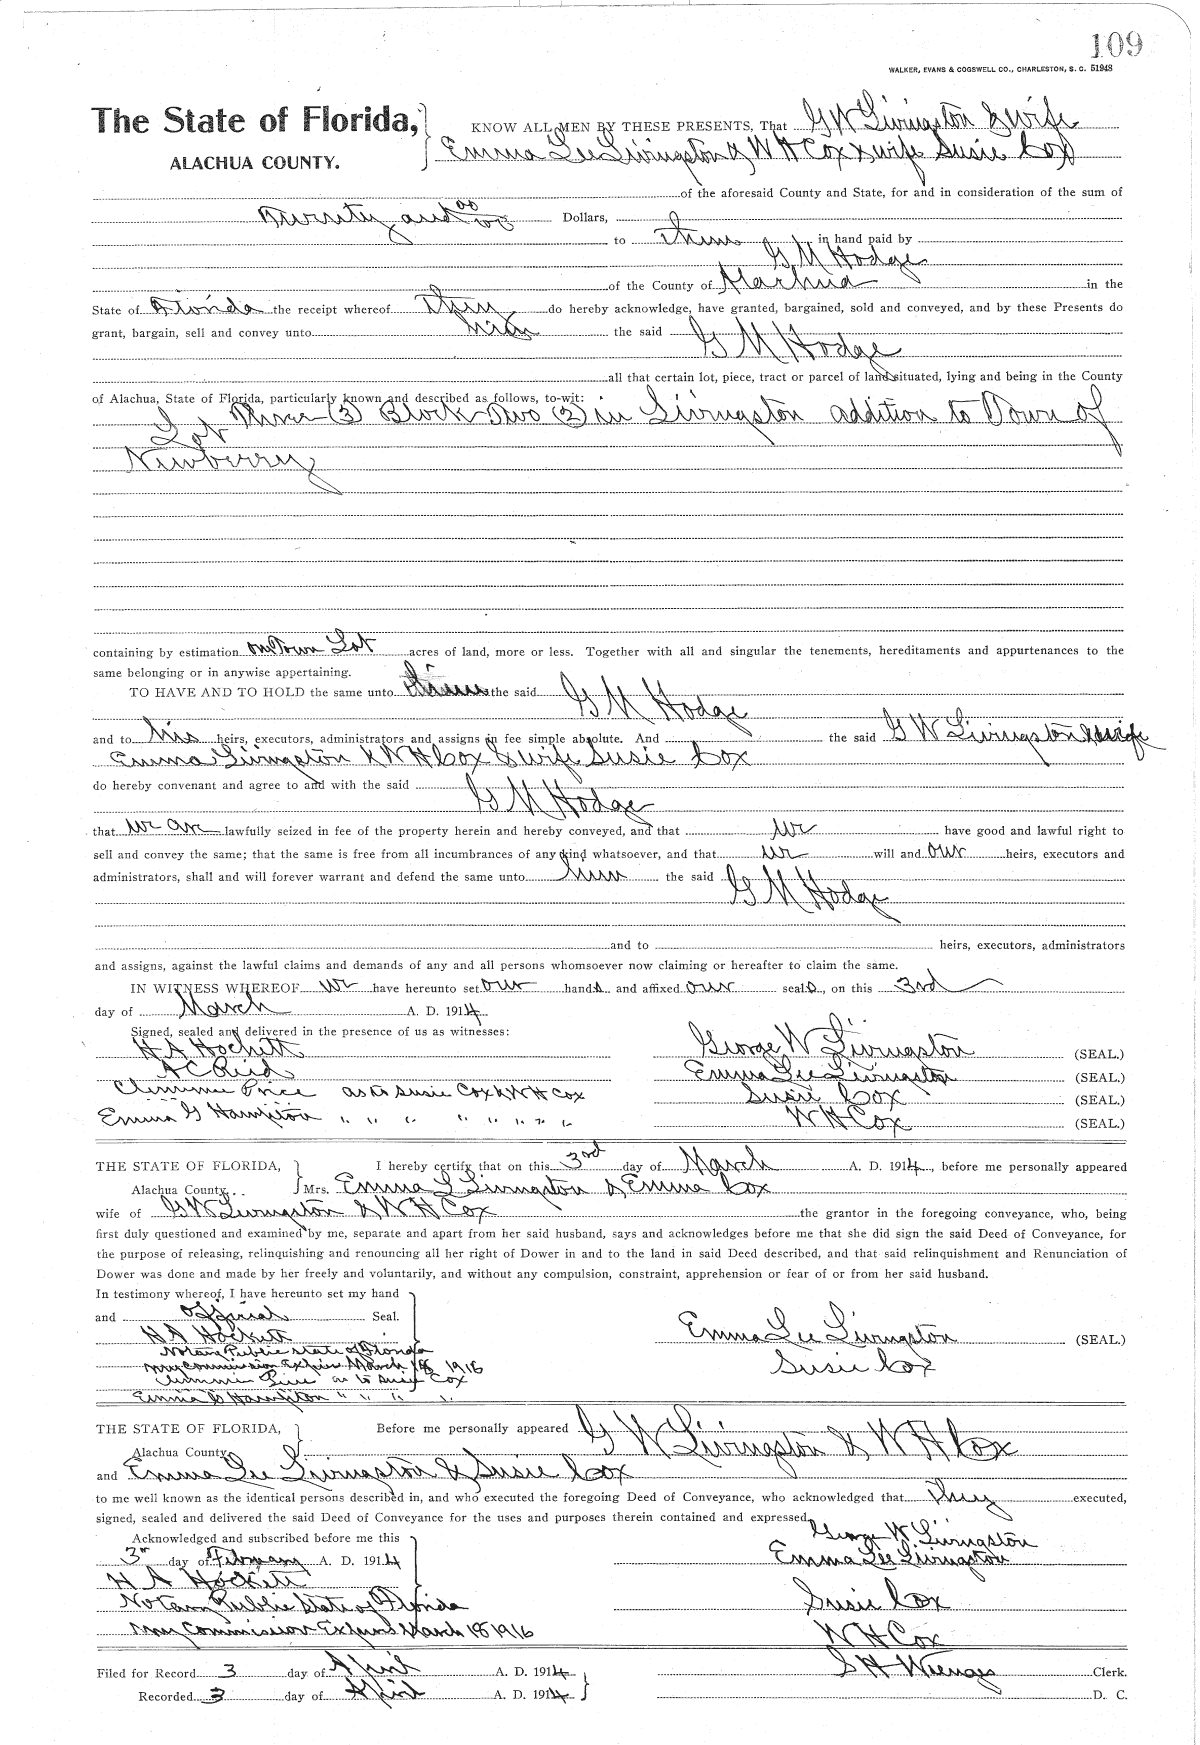 109
WALKER, EVANS & COGSWELL CO., CHARLESTON, S. C. 51948
The State of Florida,
ALACHUA COUNTY.
KNOW ALL MEN BY THESE PRESENTS, That G W Livingston & wife
Emma Lee Livingston & W H Cox & wife Susie Cox
of the aforesaid County and State, for and in consideration of the sum of
Twenty and 00/00 Dollars,
to them in hand paid by
G M Hodge
of the County of Alachua in the
State of Florida the receipt whereof they do hereby acknowledge, have granted, bargained, sold and conveyed, and by these Presents do
grant, bargain, sell and convey unto him the said G M Hodge
all that certain lot, piece, tract or parcel of land situated, lying and being in the County
of Alachua, State of Florida, particularly known and described as follows, to-wit:
Lot Three (3) Block Two (2) in Livingston addition to Town of
Newberry
containing by estimation one Town Lot acres of land, more or less. Together with all and singular the tenements, hereditaments and appurtenances to the
same belonging or in anywise appertaining.
TO HAVE AND TO HOLD the same unto the said G M Hodge
and to his heirs, executors, administrators and assigns in fee simple absolute. And the said G W Livingston & wife
Emma Livingston & W H Cox & wife Susie Cox
do hereby convenant and agree to and with the said
G M Hodge
that we are lawfully seized in fee of the property herein and hereby conveyed, and that we have good and lawful right to
sell and convey the same; that the same is free from all incumbrances of any kind whatsoever, and that we will and our heirs, executors and
administrators, shall and will forever warrant and defend the same unto him the said G M Hodge
and to heirs, executors, administrators
and assigns, against the lawful claims and demands of any and all persons whomsoever now claiming or hereafter to claim the same.
IN WITNESS WHEREOF we have hereunto set our hands and affixed our seals, on this 3rd
day of March A. D. 1914
Signed, sealed and delivered in the presence of us as witnesses:
H A Hockett George W Livingston (SEAL.)
A C Reid Emma Lee Livingston (SEAL.)
Price as to Susie Cox & W H Cox Susie Cox (SEAL.)
Emma G Hampton " " " " " " " " W H Cox (SEAL.)
THE STATE OF FLORIDA, I hereby certify that on this 3rd day of March A. D. 1914, before me personally appeared
Alachua County. Mrs. Emma L Livingston & Emma Cox
wife of G W Livingston & W H Cox the grantor in the foregoing conveyance, who, being
first duly questioned and examined by me, separate and apart from her said husband, says and acknowledges before me that she did sign the said Deed of Conveyance, for
the purpose of releasing, relinquishing and renouncing all her right of Dower in and to the land in said Deed described, and that said relinquishment and Renunciation of
Dower was done and made by her freely and voluntarily, and without any compulsion, constraint, apprehension or fear of or from her said husband.
In testimony whereof, I have hereunto set my hand
and official Seal.
H A Hockett Emma Lee Livingston (SEAL.)
Notary Public State of Florida
My Commission Expires March 18 1916 Susie Cox
as to Susie Cox
Emma G Hampton " " " "
THE STATE OF FLORIDA, Before me personally appeared G W Livingston & W H Cox
Alachua County.
and Emma Lee Livingston & Susie Cox
to me well known as the identical persons described in, and who executed the foregoing Deed of Conveyance, who acknowledged that they executed,
signed, sealed and delivered the said Deed of Conveyance for the uses and purposes therein contained and expressed.
Acknowledged and subscribed before me this George W Livingston
3rd day of February A. D. 1914 Emma Lee Livingston
H A Hockett
Notary Public State of Florida Susie Cox
My Commission Expires March 18 1916 W H Cox
Filed for Record 3 day of April A. D. 1914 S H Wienges Clerk.
Recorded 3 day of April A. D. 1914 D. C.